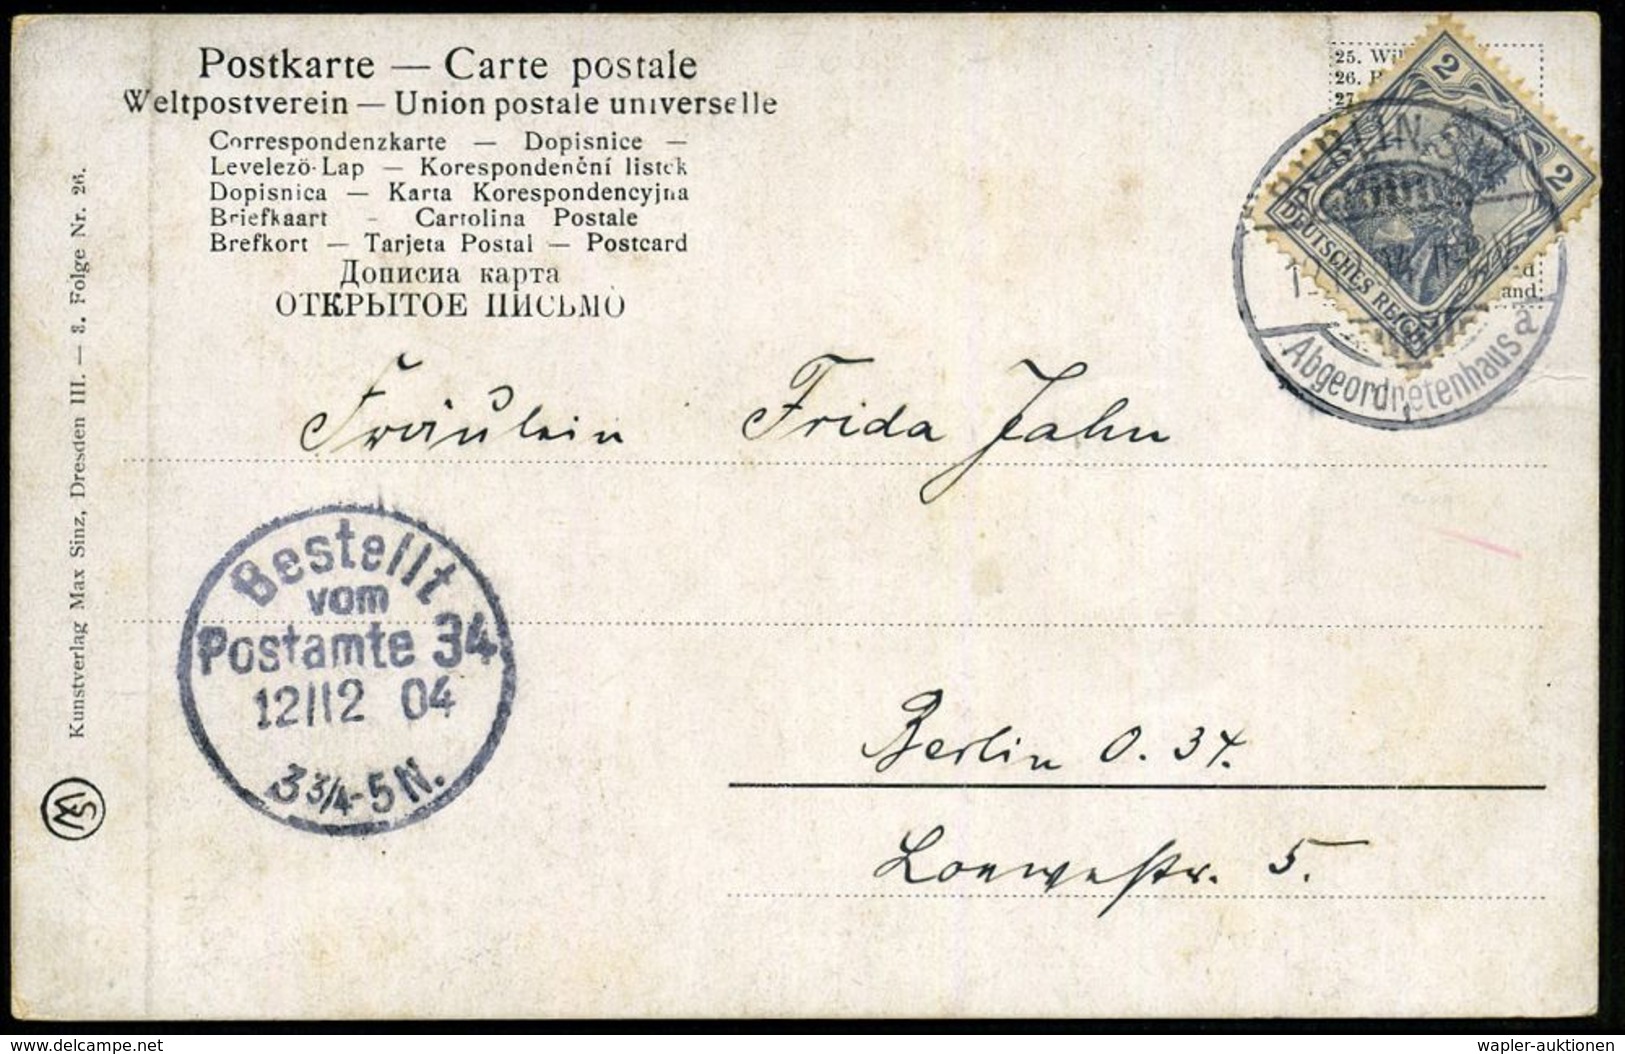 Postkarte — Carte postale
Weltpostverein — Union postale universelle
Correspondenzkarte — Dopisnice —
Levelező-Lap — Korespondenční lístek
Dopisnica — Karta Korespondencyjna
Briefkaart - Cartolina Postale
Brefkort — Tarjeta Postal — Postcard
Дописна карта
ОТКРЫТОЕ ПИСЬМО
25.
26.
27
and
2
2
DEUTSCHES REICH
BERLIN
Abgeordnetenhaus a
Kunstverlag Max Sinz, Dresden III. — 3. Folge Nr. 26.
Fräulein Frida Jahn
Bestellt
vom
Postamte 34
12/12 04
3 3/4-5 N.
Berlin O. 34.
Loewestr. 5.
www.delcampe.net
wapler-auktionen